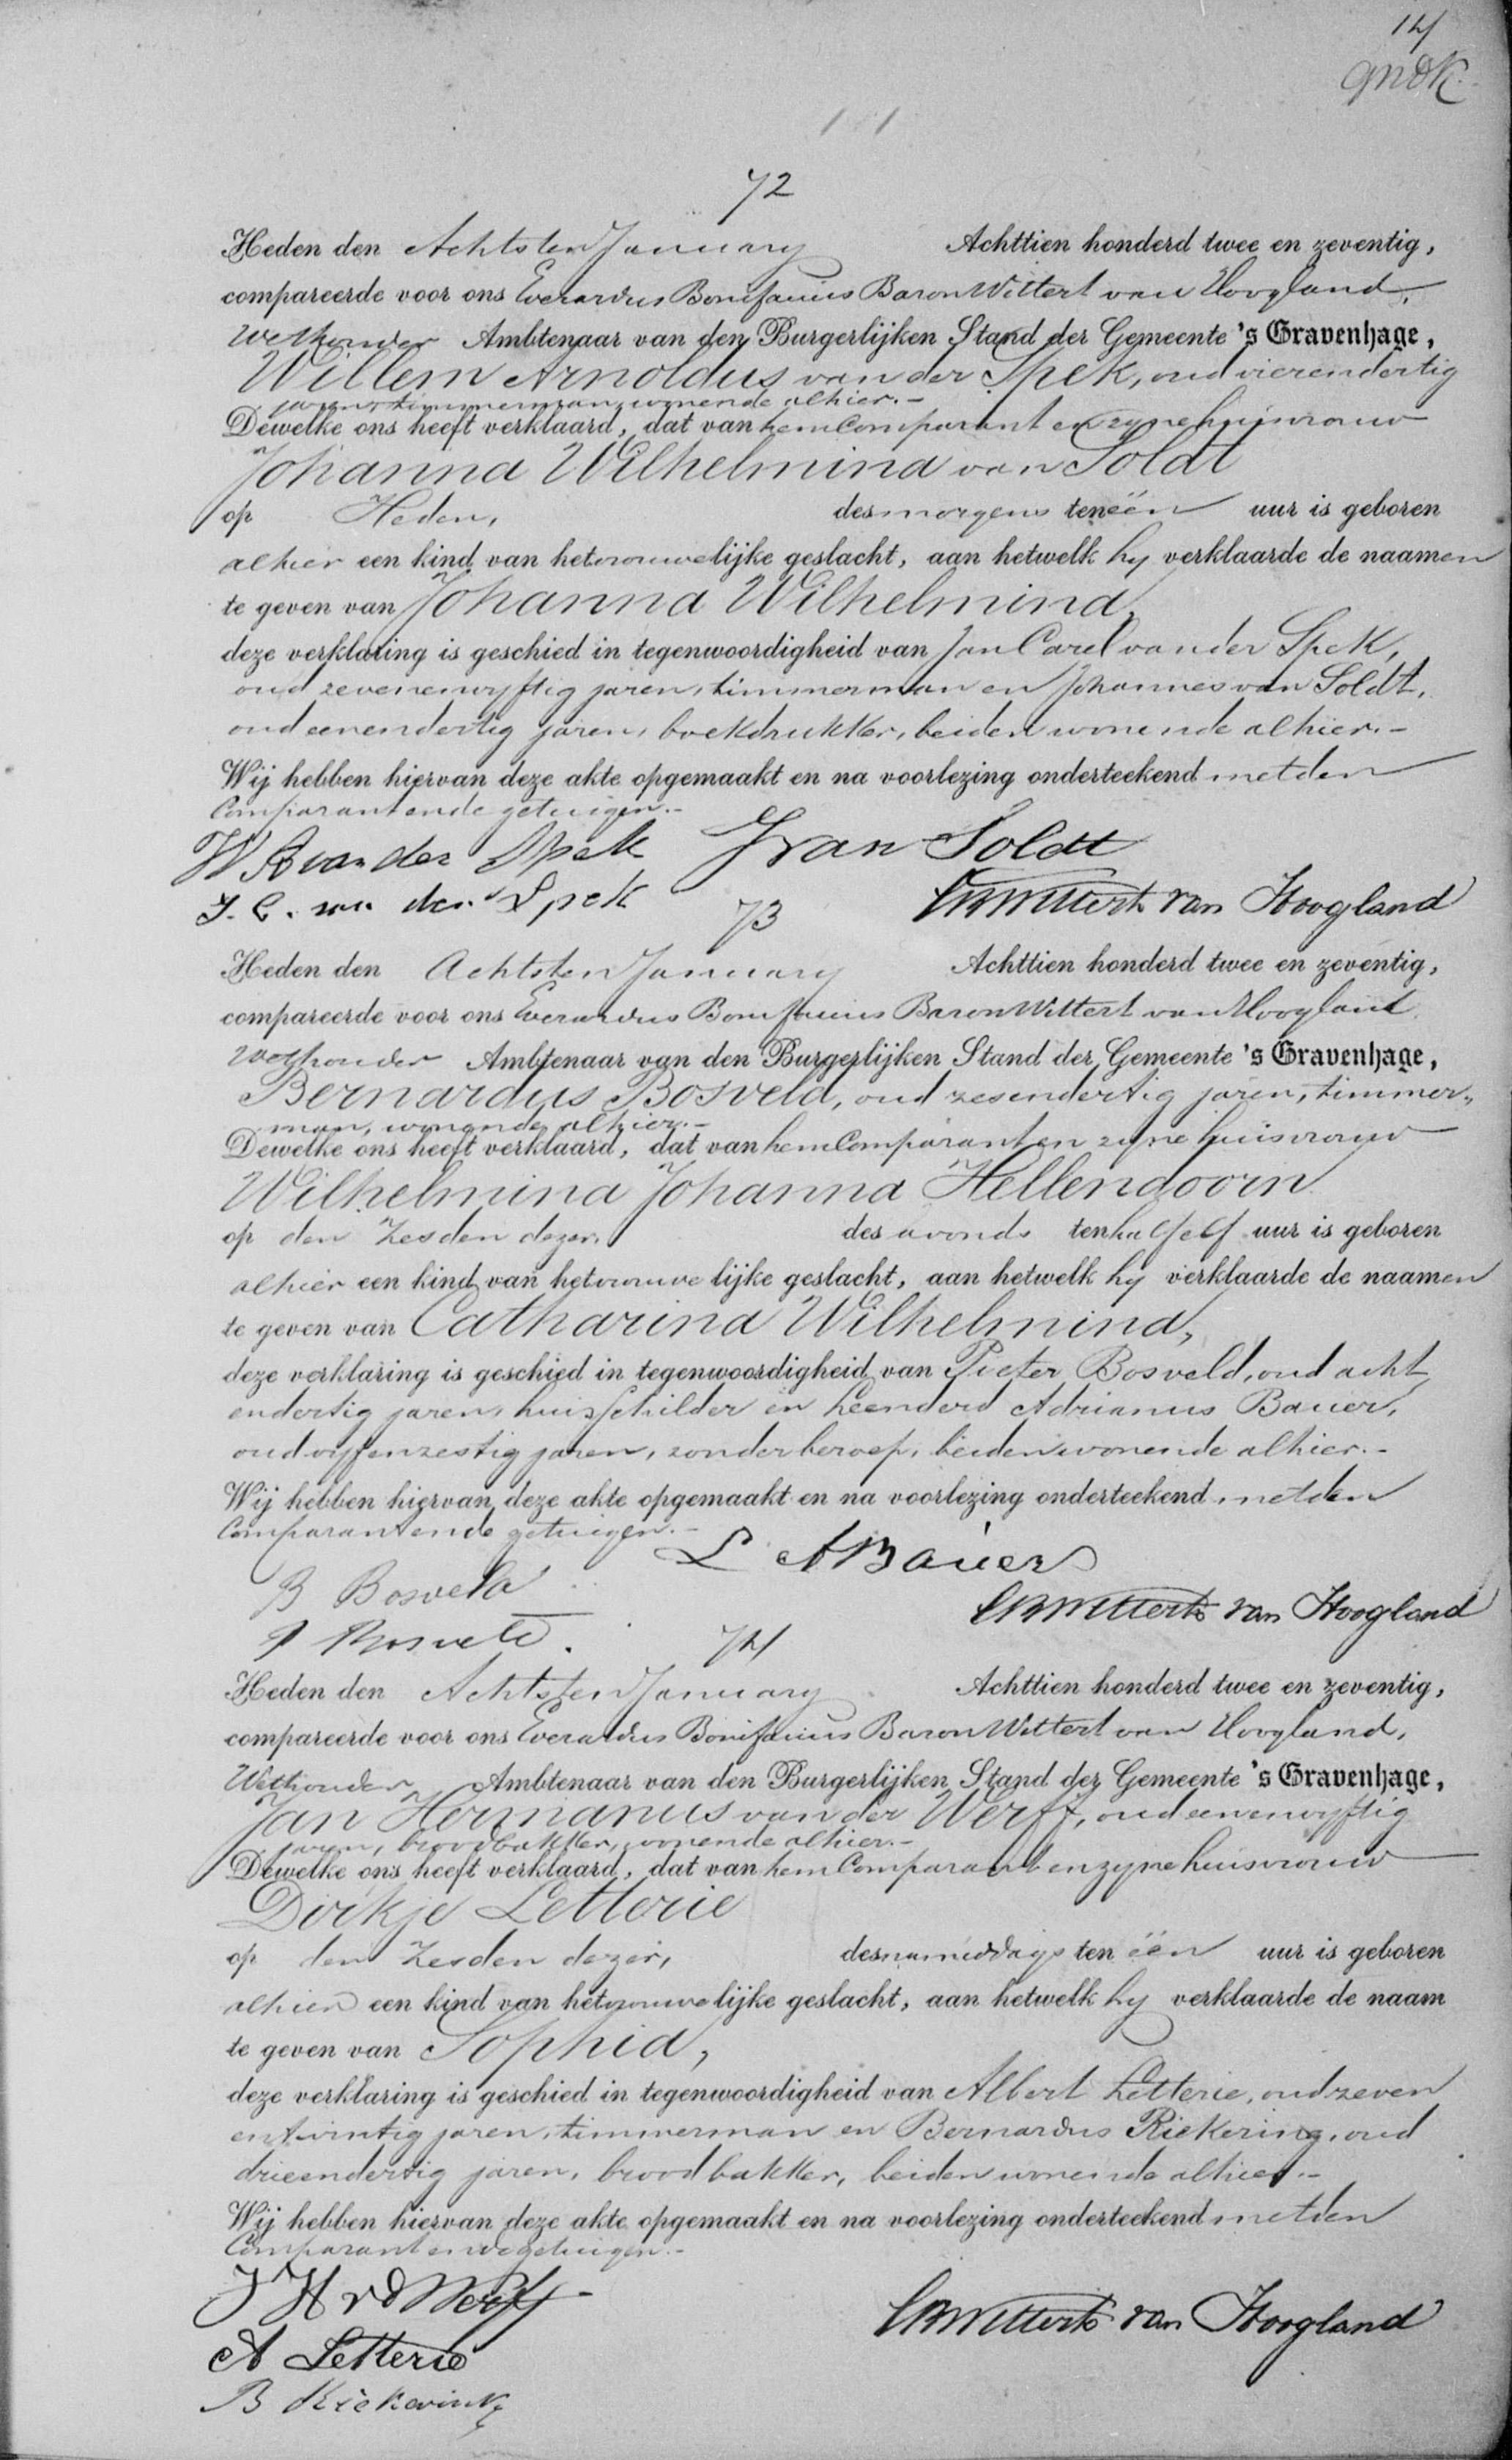 14
72
Heden den Achtsten January Achttien honderd twee en zeventig,
compareerde voor ons Everardus Bonifacius Baron Wittert van Hoogland,
Wethouder Ambtenaar van den Burgerlijken Stand der Gemeente 's Gravenhage,
Willem Arnoldus van der Spek, oud vierendertig
jaren, timmerman, wonende alhier.-
Dewelke ons heeft verklaard, dat van hem Comparant en zyne huisvrouw
Johanna Wilhelmina van Soldt
op Heden, des morgens ten één uur is geboren
alhier een kind van het vrouwelijke geslacht, aan hetwelk hy verklaarde de naamen
te geven van Johanna Wilhelmina,
deze verklaring is geschied in tegenwoordigheid van Jan Carel van der Spek,
oud zevenenvyftig jaren, timmerman en Johannes van Soldt,
oud eenendertig jaren, boekdrukker, beiden wonende alhier.-
Wij hebben hiervan deze akte opgemaakt en na voorlezing onderteekend met den
Comparant en de getuigen.-
W A van der Spek J van Soldt
J. C. van der Spek EBWittert van Hoogland
73
Heden den Achtsten January Achttien honderd twee en zeventig,
compareerde voor ons Everardus Bonifacius Baron Wittert van Hoogland
Wethouder Ambtenaar van den Burgerlijken Stand der Gemeente 's Gravenhage,
Bernardus Bosveld, oud zesendertig jaren, timmer„
man, wonende alhier.-
Dewelke ons heeft verklaard, dat van hem Comparant en zyne huisvrouw
Wilhelmina Johanna Hellendoorn
op den Zesden dezer, des avonds ten half elf uur is geboren
alhier een kind van het vrouwelijke geslacht, aan hetwelk hy verklaarde de naamen
te geven van Catharina Wilhelmina,
deze verklaring is geschied in tegenwoordigheid van Pieter Bosveld, oud acht
endertig jaren, huisschilder en Leenderd Adrianus Bauer,
oud vyfenzestig jaren, zonder beroep, beiden wonende alhier.-
Wij hebben hiervan deze akte opgemaakt en na voorlezing onderteekend met den
Comparant en de getuigen.-
L A Bauer
B Bosveld
EBWittert van Hoogland
P Bosveld.
74
Heden den Achtsten January Achttien honderd twee en zeventig,
compareerde voor ons Everardus Bonifacius Baron Wittert van Hoogland,
Wethouder Ambtenaar van den Burgerlijken Stand der Gemeente 's Gravenhage,
Jan Hermanus van der Werff, oud eenenvyftig
jaren, broodbakker, wonende alhier.-
Dewelke ons heeft verklaard, dat van hem Comparant en zyne huisvrouw
Dirkje Letterie
op den Zesden dezer, des namiddags ten één uur is geboren
alhier een kind van het vrouwelijke geslacht, aan hetwelk hy verklaarde de naam
te geven van Sophia,
deze verklaring is geschied in tegenwoordigheid van Albert Letterie, oud zeven
entwintig jaren, timmerman en Bernardus Riekering, oud
drieendertig jaren, broodbakker, beiden wonende alhier.-
Wij hebben hiervan deze akte opgemaakt en na voorlezing onderteekend met den
Comparant en de getuigen.-
J H v d Werff
EBWittert van Hoogland
A Letterie
B Riekerink